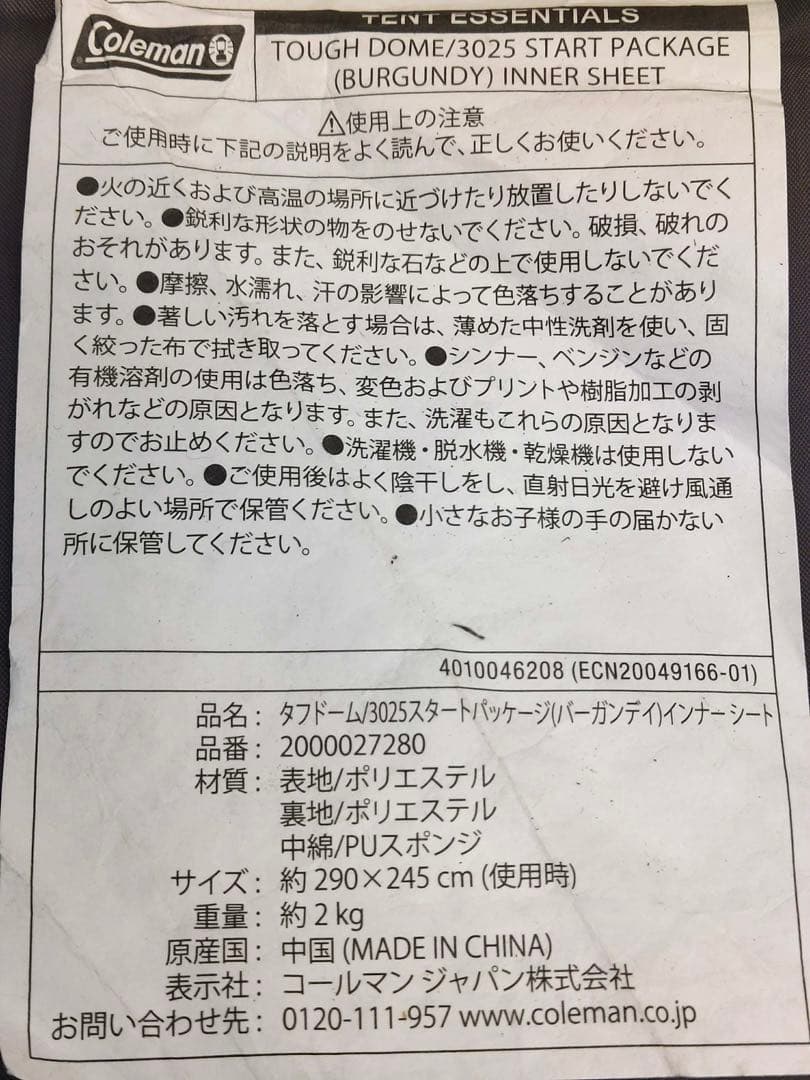 Coleman
TENT ESSENTIALS
TOUGH DOME/3025 START PACKAGE
(BURGUNDY) INNER SHEET
⚠使用上の注意
ご使用時に下記の説明をよく読んで、正しくお使いください。
●火の近くおよび高温の場所に近づけたり放置したりしないでく
ださい。●鋭利な形状の物をのせないでください。破損、破れの
おそれがあります。また、鋭利な石などの上で使用しないでくだ
さい。●摩擦、水濡れ、汗の影響によって色落ちすることがあり
ます。●著しい汚れを落とす場合は、薄めた中性洗剤を使い、固
く絞った布で拭き取ってください。●シンナー、ベンジンなどの
有機溶剤の使用は色落ち、変色およびプリントや樹脂加工の剥
がれなどの原因となります。また、洗濯もこれらの原因となりま
すのでお止めください。●洗濯機・脱水機・乾燥機は使用しない
でください。●ご使用後はよく陰干しをし、直射日光を避け風通
しのよい場所で保管ください。●小さなお子様の手の届かない
所に保管してください。
4010046208 (ECN20049166-01)
品名: タフドーム/3025スタートパッケージ(バーガンデイ)インナーシート
品番: 2000027280
材質: 表地/ポリエステル
裏地/ポリエステル
中綿/PUスポンジ
サイズ: 約 290×245 cm (使用時)
重量: 約 2 kg
原産国: 中国 (MADE IN CHINA)
表示社: コールマン ジャパン株式会社
お問い合わせ先: 0120-111-957 www.coleman.co.jp